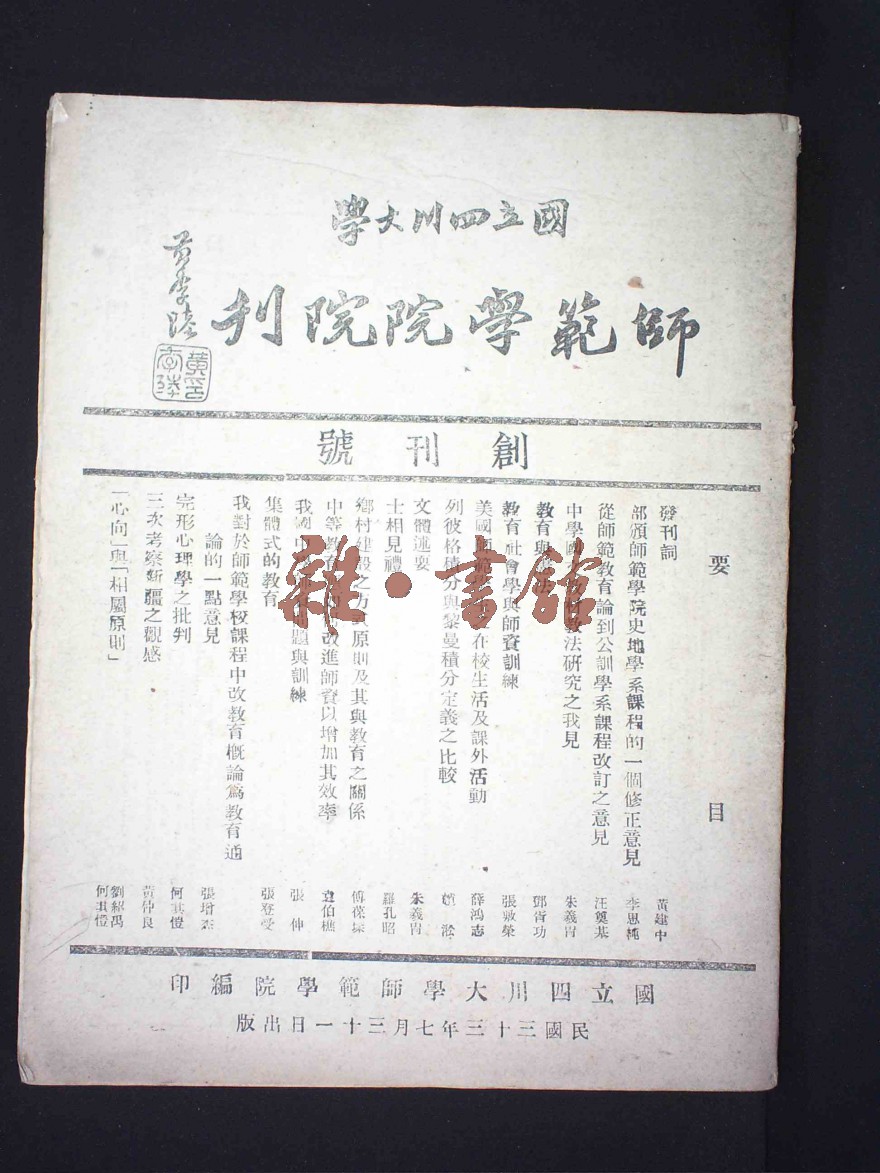 國立四川大學
師範學院院刊
黃季陸
黃季陸印
創刊號
要目
發刊詞 黃建中
部頒師範學院史地學系課程的一個修正意見 李思純
從師範教育論到公訓學系課程改訂之意見 汪奠基
中學國文教材教法研究之我見 朱義冑
教育與 鄧胥功
教育社會學與師資訓練 張敷榮
美國師範 在校生活及課外活動 薛鴻志
列彼格積分與黎曼積分定義之比較 淞
文體述要 朱義冑
士相見禮 羅孔昭
鄉村建設之方 原則及其與教育之關係 傅葆琛
中等教育 改進師資以增加其效率 伯樵
我國中 問題與訓練 張伸
集體式的教育 張登受
我對於師範學校課程中改教育概論爲教育通論的一點意見 張增
完形心理學之批判 何其愷
三次考察新疆之觀感 黃仲良
「心向」與「相屬原則」 劉紹禹 何其愷
國立四川大學師範學院編印
民國三十三年七月三十一日出版
雜·書館